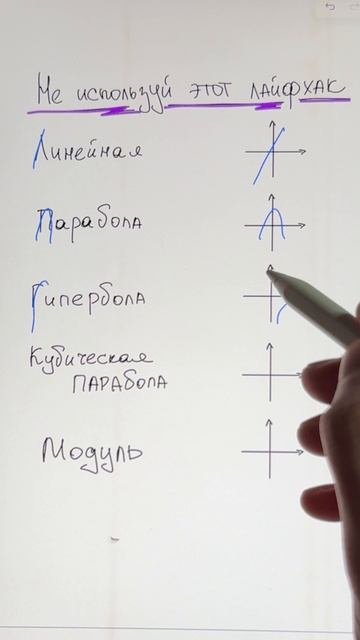 Не используй этот лайфхак
Линейная
Парабола
Гипербола
Кубическая
ПАРАБОЛА
Модуль